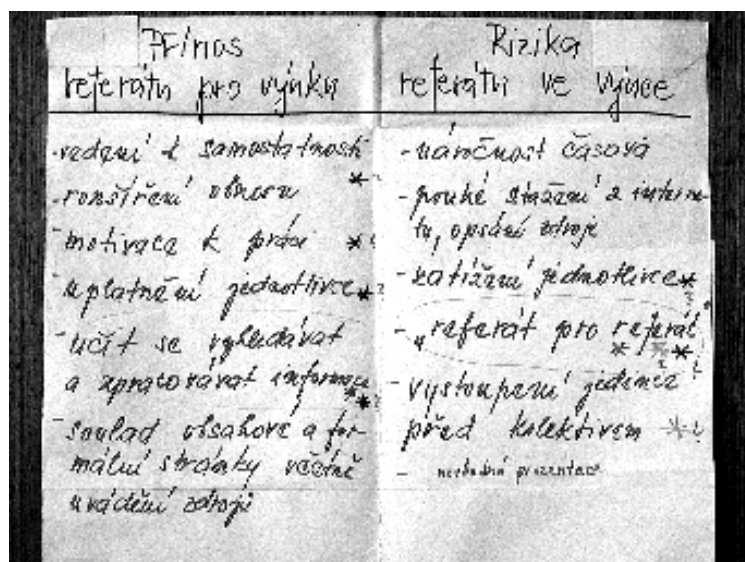 Přínos
referátu pro výuku
- vedení k samostatnosti
- rozšíření obzoru
- motivace k práci
- uplatnění jednotlivce
- učit se vyhledávat
a zpracovávat informace
- soulad obsahové a for-
mální stránky včetně
uvádění zdrojů
Rizika
referátu ve výuce
- náročnost časová
- pouhé stažení z interne-
tu, opsání zdroje
- zatížení jednotlivce
- „referát pro referát"
- vystoupení jedince
před kolektivem
- nevhodná prezentace